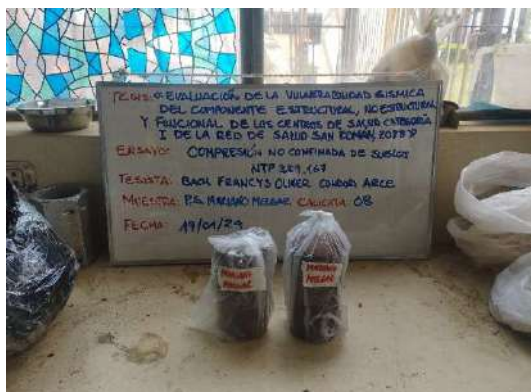 TESIS: "EVALUACIÓN DE LA VULNERABILIDAD SÍSMICA
DEL COMPONENTE ESTRUCTURAL, NO ESTRUCTURAL
Y FUNCIONAL DE LOS CENTROS DE SALUD CATEGORÍA
I DE LA RED DE SALUD SAN ROMÁN, 2023"
ENSAYO: COMPRESIÓN NO CONFINADA DE SUELOS
NTP 339.167
TESISTA: BACH. FRANCYS OLIVER CONDORI ARCE
MUESTRA: P.S. MARIANO MELGAR CALICATA: 08
FECHA: 19/01/24
MARIANO
MELGAR
MARIANO
MELGAR